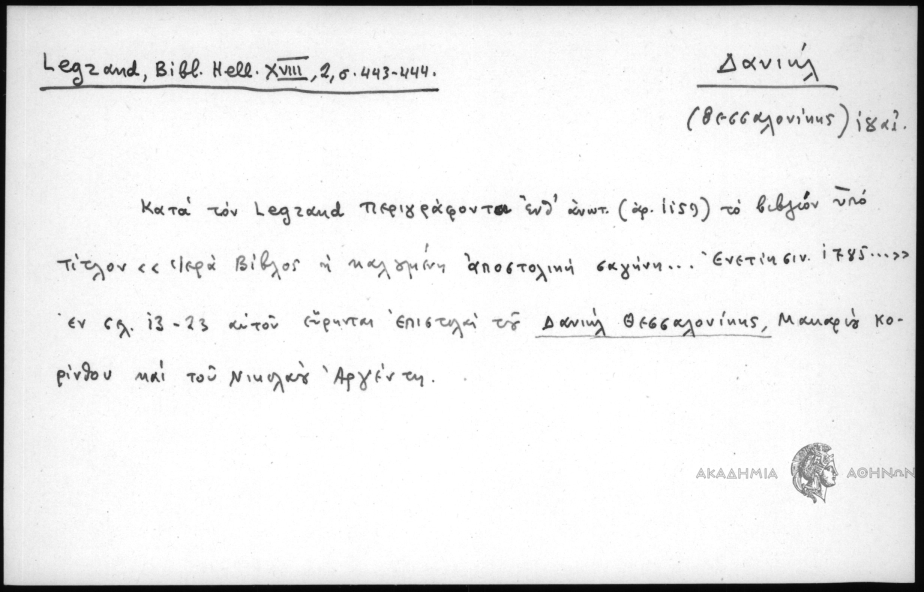 Legrand, Bibl. Hell. XVIII, 2, σ. 443-444.
Δανιήλ
(Θεσσαλονίκης) ιη' αἰ.
Κατά τόν Legrand περιγράφονται ἔνθ' ἀνωτ. (ἀρ. 1159) τό βιβλίον ὑπό
τίτλον << Ἱερά Βίβλος ἡ καλουμένη ἀποστολική σαγήνη... Ἐνετίησιν. 1785...>>
Ἐν σελ. 13-23 αὐτοῦ εὕρηνται ἐπιστολαί τοῦ Δανιήλ Θεσσαλονίκης, Μακαρίου Κο-
ρίνθου καί τοῦ Νικολάου Ἀργέντη.
ΑΚΑΔΗΜΙΑ ΑΘΗΝΩΝ